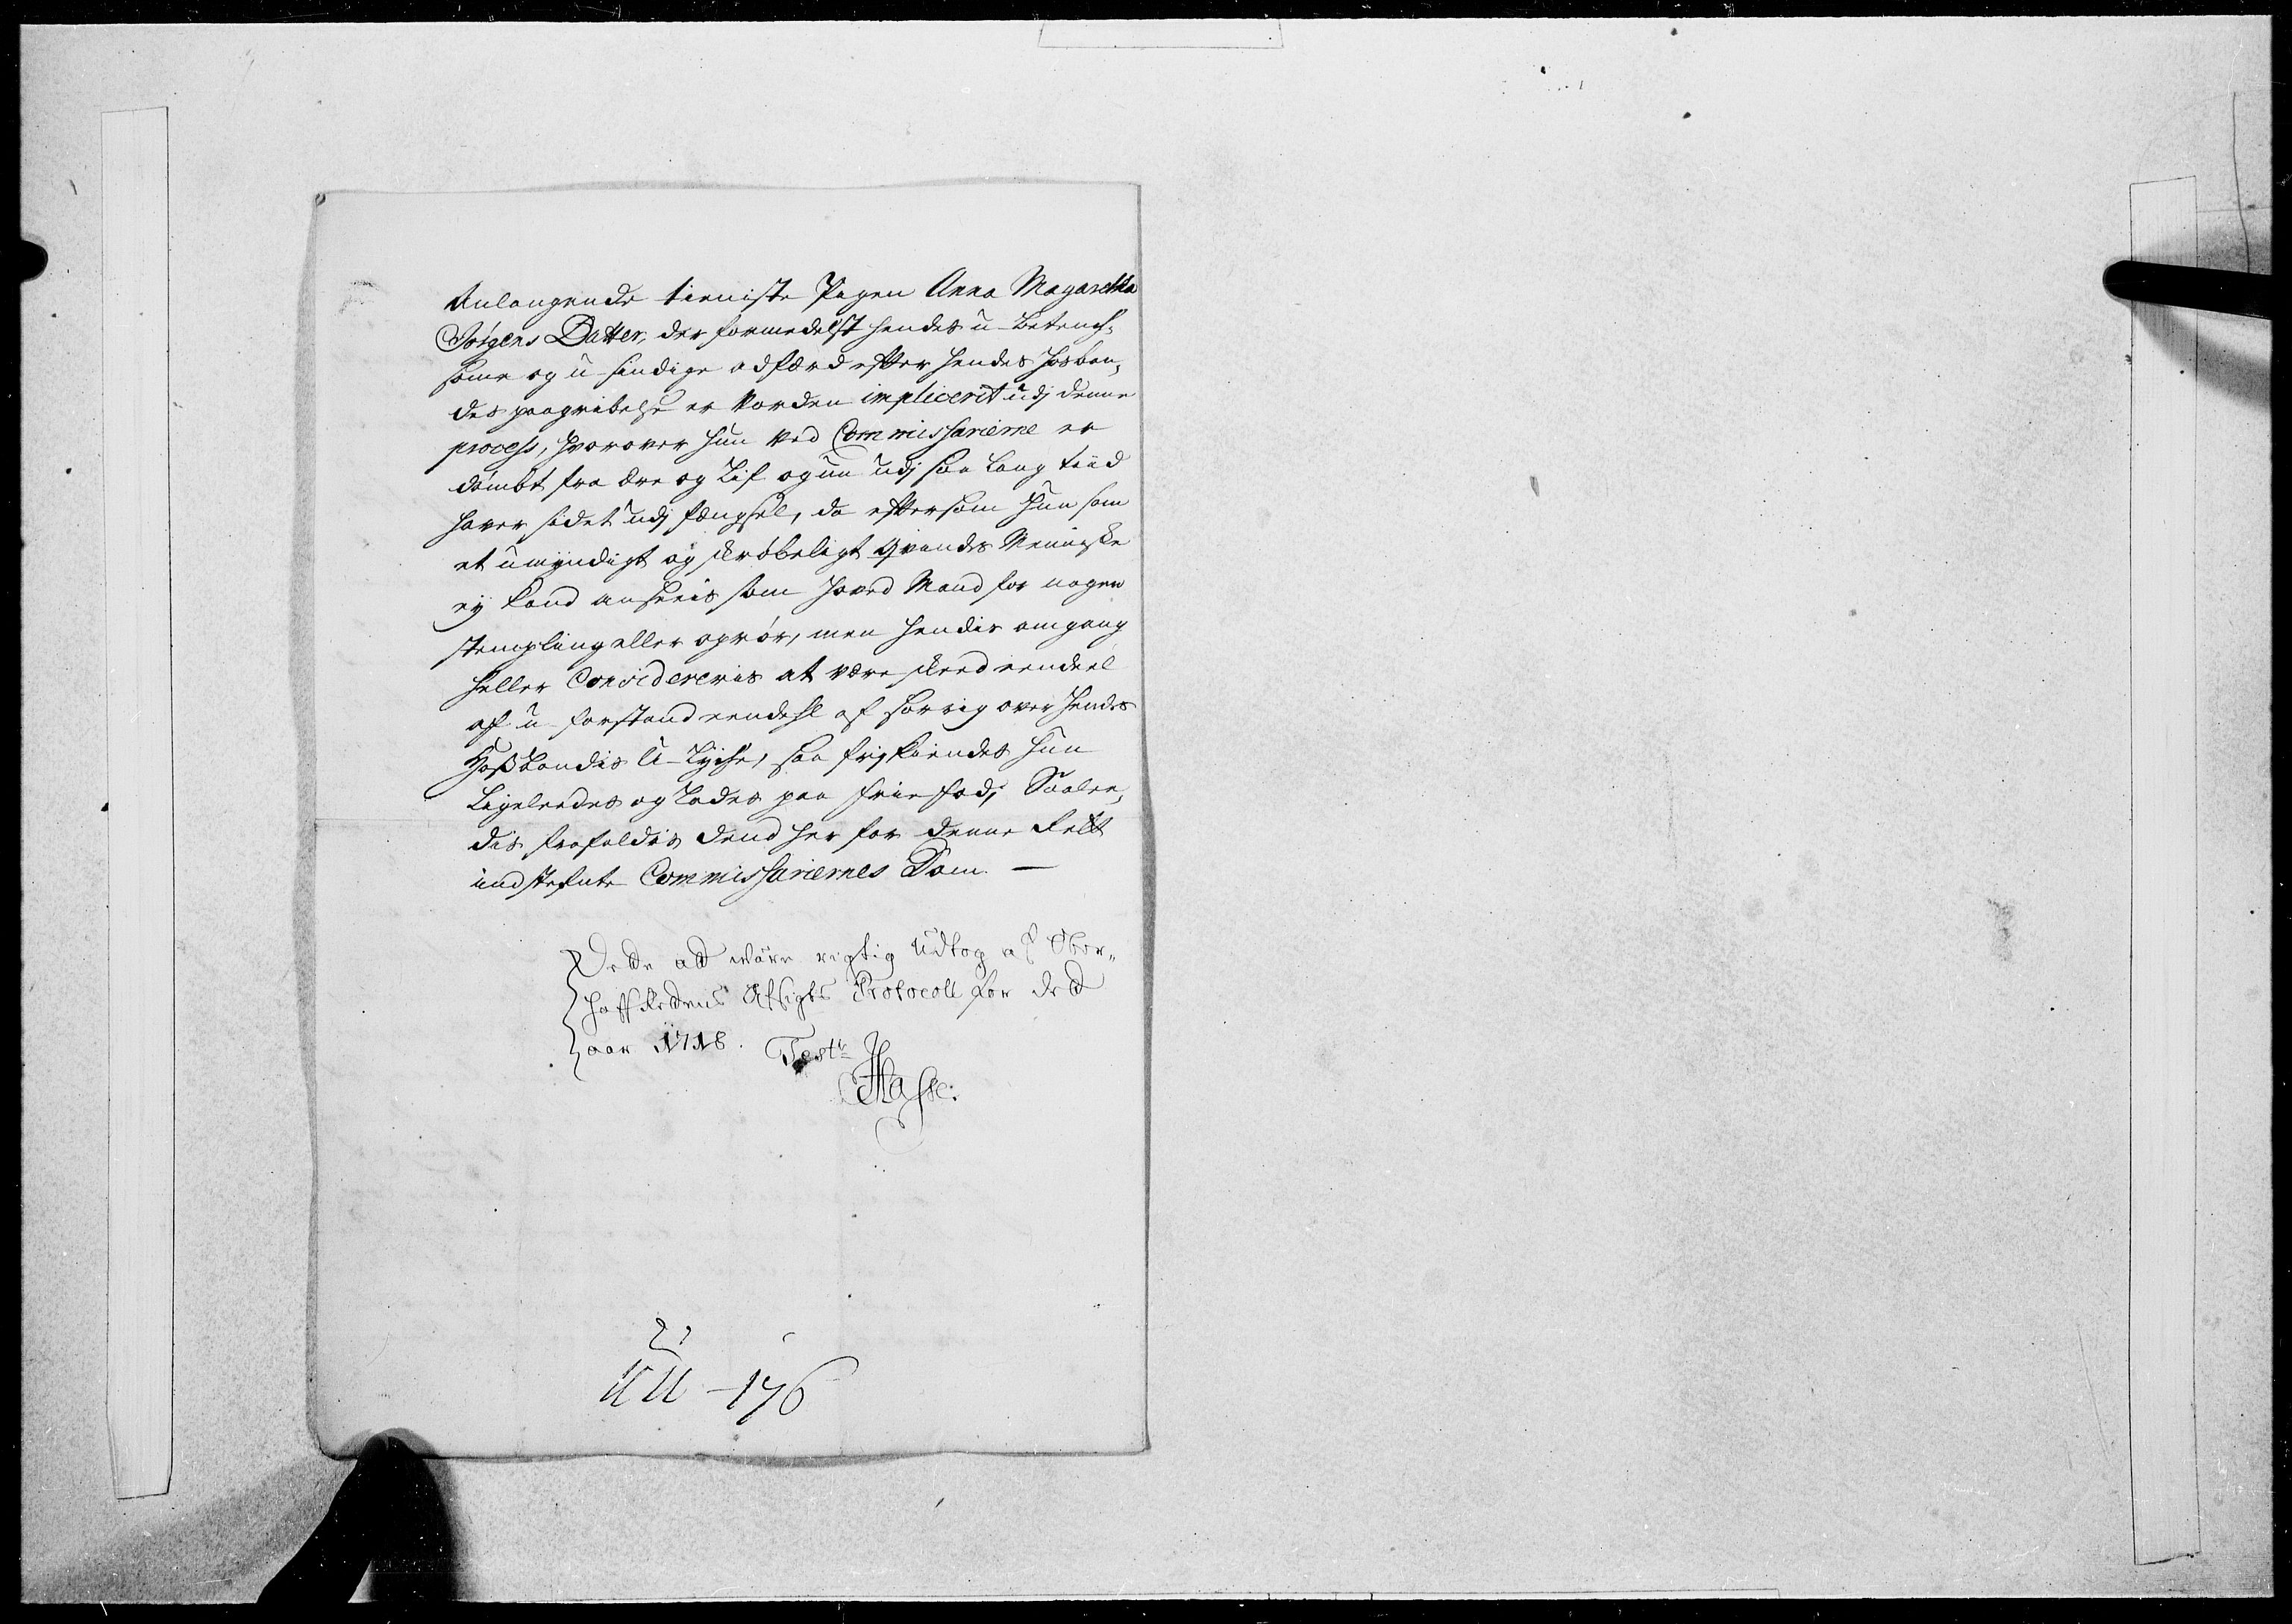 Anlangende tieniste Pigen Anna Magaretha
Jörgens Datter, der formedelst hendes u-betenck-
some og u-sindige adfærd efter hendes Hosbon-
des paagribelse er vorden impliceret udj denne
process, hvorover hun ved Commissarierne er
dömbt fra ære og Lif og nu udj saa lang tiid
haver sidet udj fængsel, da eftersom hun som
et umyndigt og skröbeligt Qvindes Menniske
ey kand ansees som hoved Mand for nogen
stempling eller oprör, men hendis omgang
heller Considereris at være skeed eendeel
af u-forstand eendehl af sorrig over hendes
Hosbondis U-Lycke, saa frikiendes hun
Ligeleedes og Lades paa frie fod; Saalee-
dis frafaldis dend her for denne Rett
indstefnte Commissariernes Dom. —
Dette at være rigtig Udtog af Ober-
hoffRettens Afsigts Protocoll for det
aar 1718. Test:
Hasse:
UU - 176